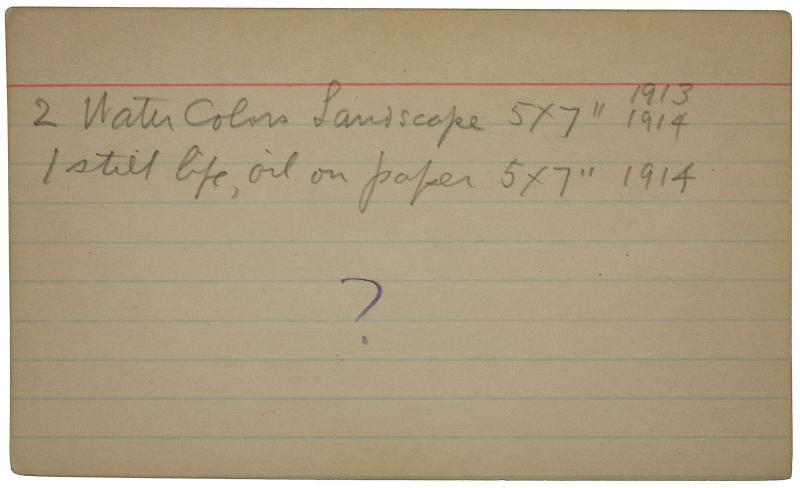 2 Water Colors Landscape 5x7" 1913
1914
1 still life, oil on paper 5x7" 1914
?